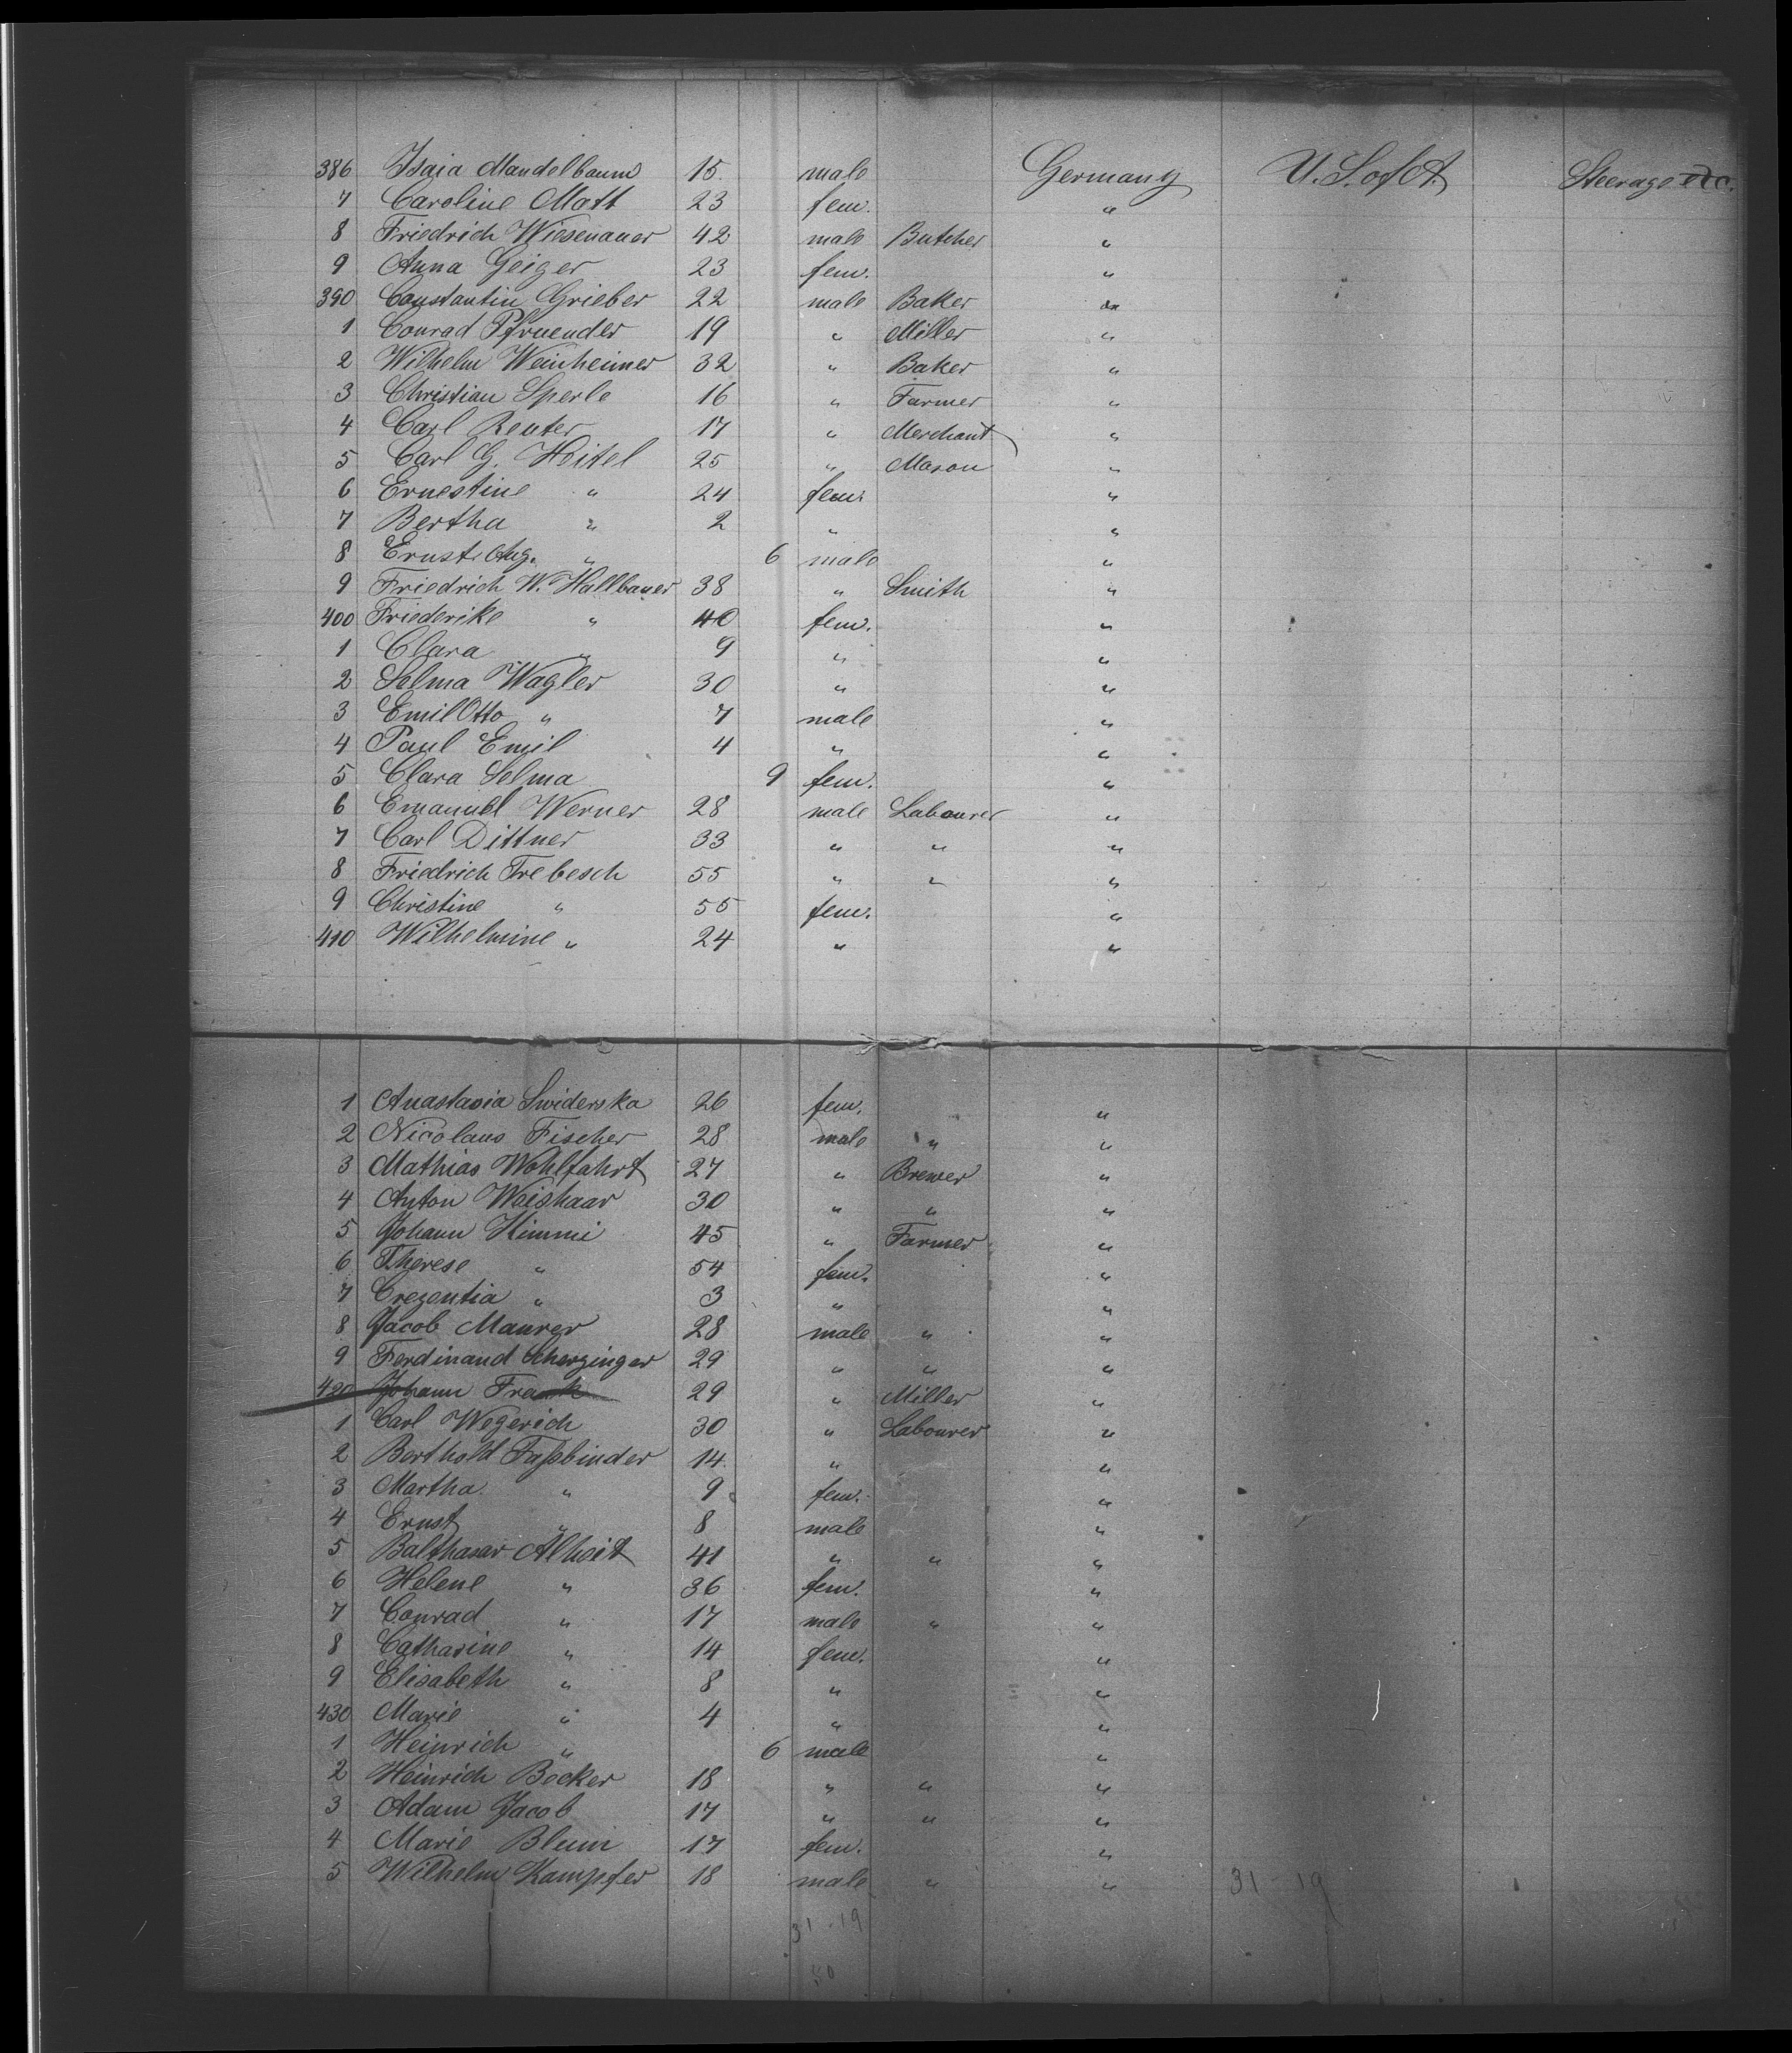 386 Isaia Mandelbaum 15. male Germany U. S. of A. Steerage etc.
7 Caroline Matt 23 fem. "
8 Friedrich Wiesenauer 42 male Butcher "
9 Anna Geiger 23 fem. "
390 Constantin Grieber 22 male Baker "
1 Conrad Pfruender 19 " Miller "
2 Wilhelm Weinheimer 32 " Baker "
3 Christian Sperle 16 " Farmer "
4 Carl Reuter 17 " Merchant "
5 Carl G. Heitel 25 " Mason "
6 Ernestine " 24 fem. "
7 Bertha " 2 " "
8 Ernst Aug. " 6 male "
9 Friedrich W. Hallbauer 38 " Smith "
400 Friederike " 40 fem. "
1 Clara " 9 " "
2 Selma Wagler 30 " "
3 Emil Otto " 7 male "
4 Paul Emil 4 " "
5 Clara Selma 9 fem. "
6 Emanuel Werner 28 male Labourer "
7 Carl Dittner 33 " " "
8 Friedrich Trebesch 55 " " "
9 Christine " 55 fem. "
410 Wilhelmine " 24 " "
1 Anastasia Swiderska 26 fem. "
2 Nicolaus Fischer 28 male " "
3 Mathias Wohlfahrt 27 " Brewer "
4 Anton Weishaar 30 " " "
5 Johann Himmi 45 " Farmer "
6 Therese " 54 fem. "
7 Crezentia " 3 " "
8 Jacob Maurer 28 male " "
9 Ferdinand Scherzinger 29 " " "
420 Johann Frank 29 " Miller "
1 Carl Wegerich 30 " Labourer "
2 Berthold Faßbinder 14. " "
3 Martha " 9 fem. "
4 Ernst " 8 male "
5 Balthasar Alheit 41 " " "
6 Helene " 36 fem. "
7 Conrad " 17 male " "
8 Catharine " 14 fem. "
9 Elisabeth " 8 " "
430 Marie " 4 " "
1 Heinrich " 6 male "
2 Heinrich Becker 18 " " "
3 Adam Jacob 17 " " "
4 Marie Blum 17 fem. "
5 Wilhelm Kampfer 18 male " " 31 - 19
31 - 19
50